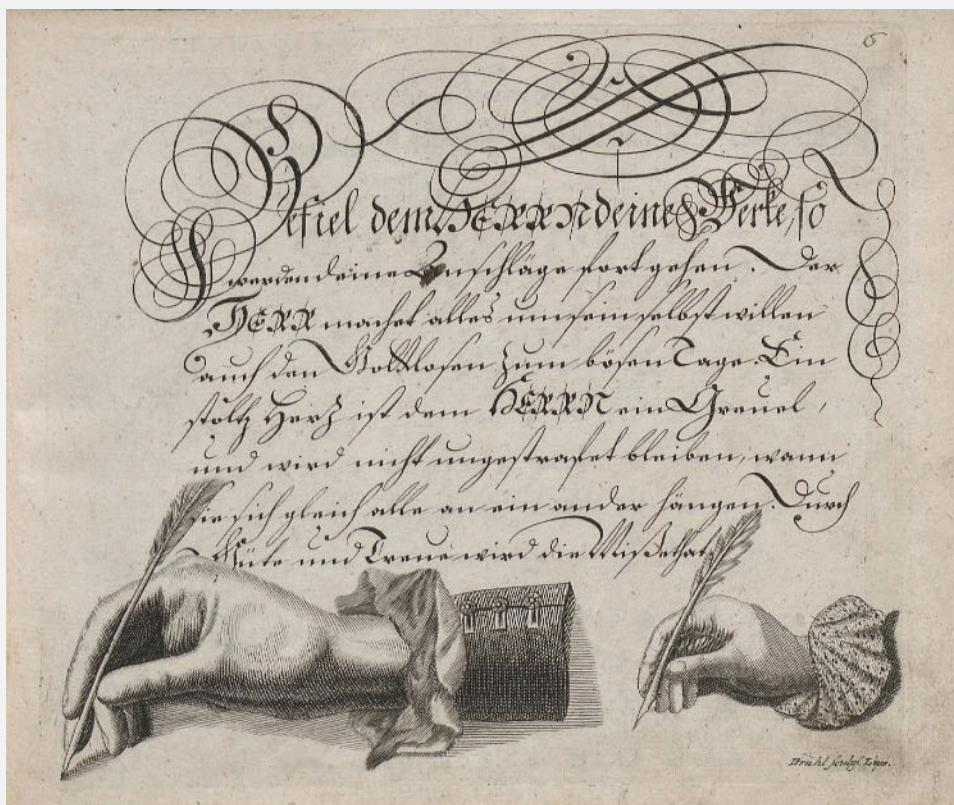 6
Befiel dem HERRN deine Werke, so
werden deine Anschläge fortgehen. Der
HERR machet alles um sein selbst willen
auch den Gottlosen zum bösen Tage. Ein
stoltz Hertz ist dem HERRN ein Greuel,
und wird nicht ungestrafet bleiben, wann
sie sich gleich alle an ein ander hängen. Durch
Güte und Treue wird die Mißethat
Brühl sculps. Lips.